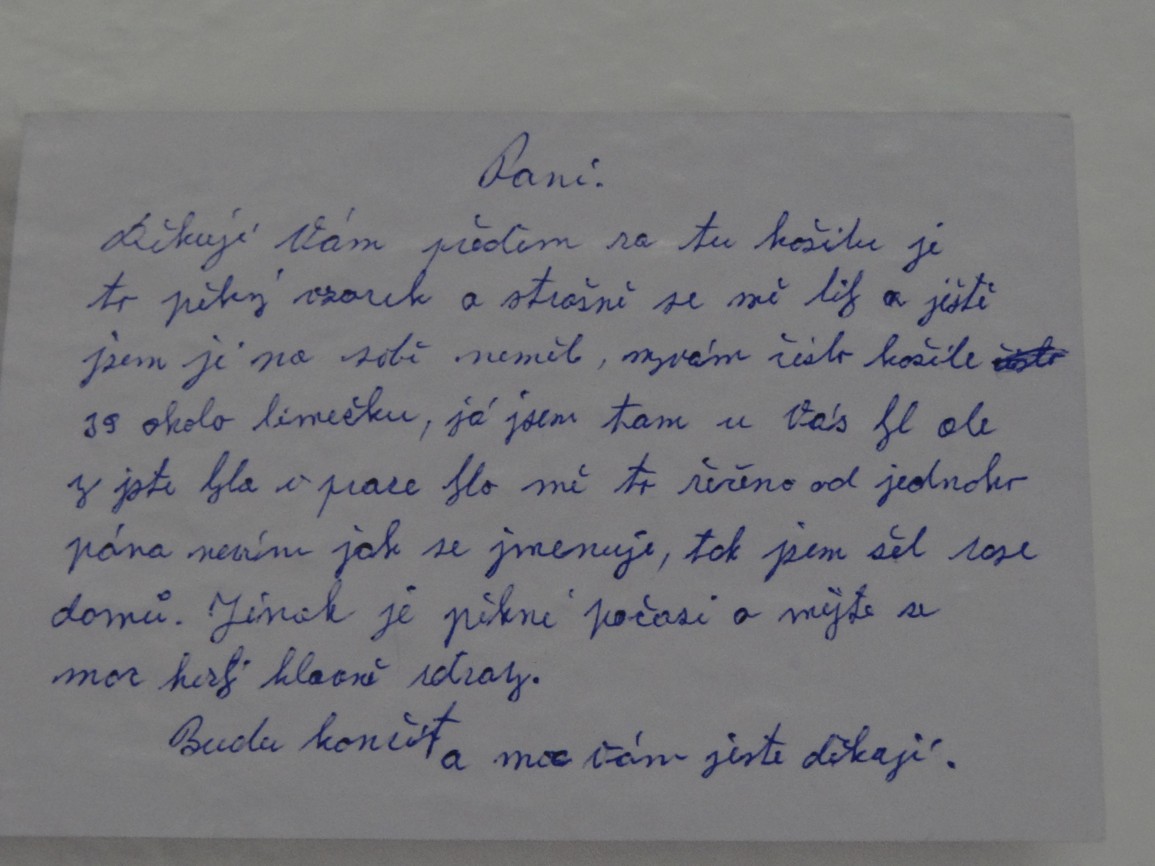 Paní.
Děkují Vám předem za tu košilu je
to pěkný vzorek a strašně se mě líb a ještě
jsem jí na sobě neměl, nzvám číslo košile
39 okolo límečku, já jsem tam u Vás byl ale
vy jste byla v prace bylo mě to řěčeno od jednoho
pána nevím jak se jmenuje, tak jsem šel zase
domů. Jinak je pěkné počasí a mějte se
moc hezky hlavně zdravy.
Budu končit a moc vám jeste děkají.